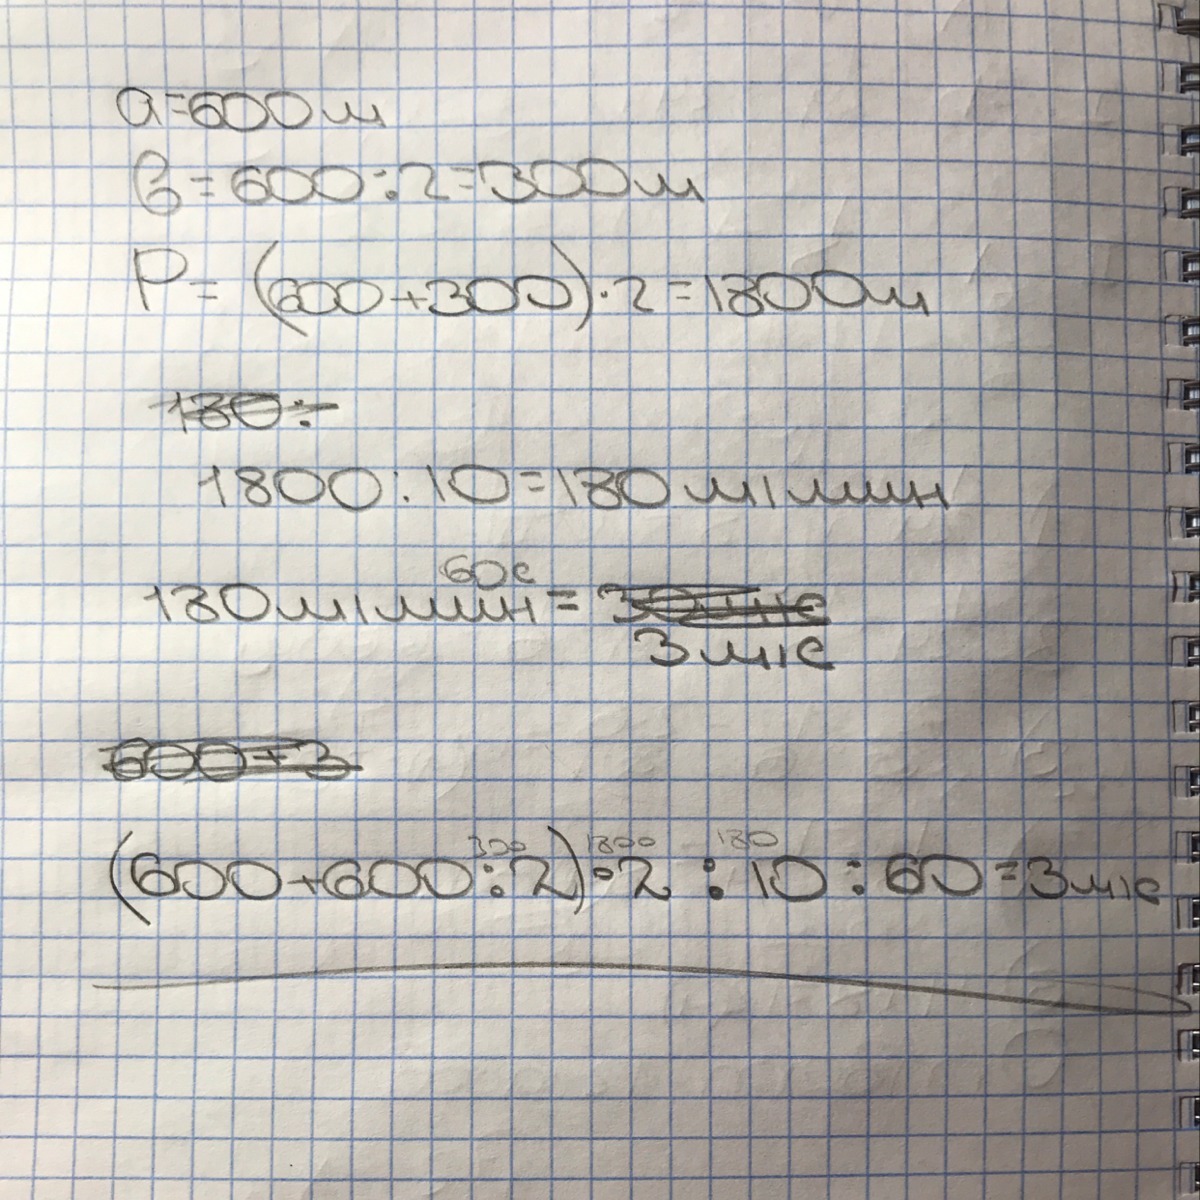 a=600м
в=600:2=300м
P=(600+300)·2=1800м
180:
1800:10=180м/мин
60с
180м/мин=30м/с
3м/с
600+3
300 1800 180
(600+600:2)·2:10:60=3м/с